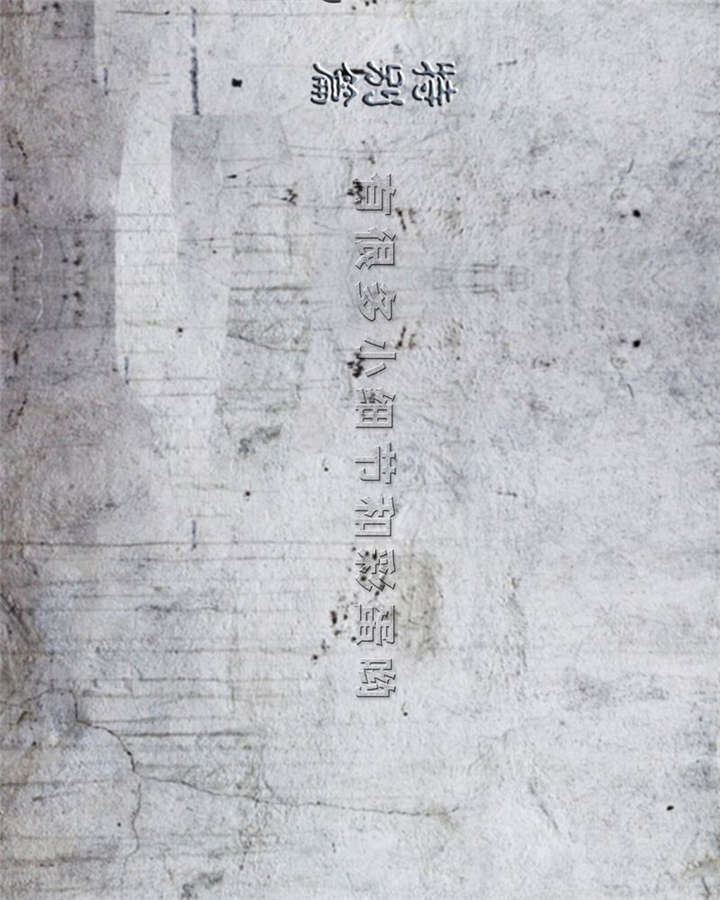 特别篇
有很多小细节和彩蛋哟